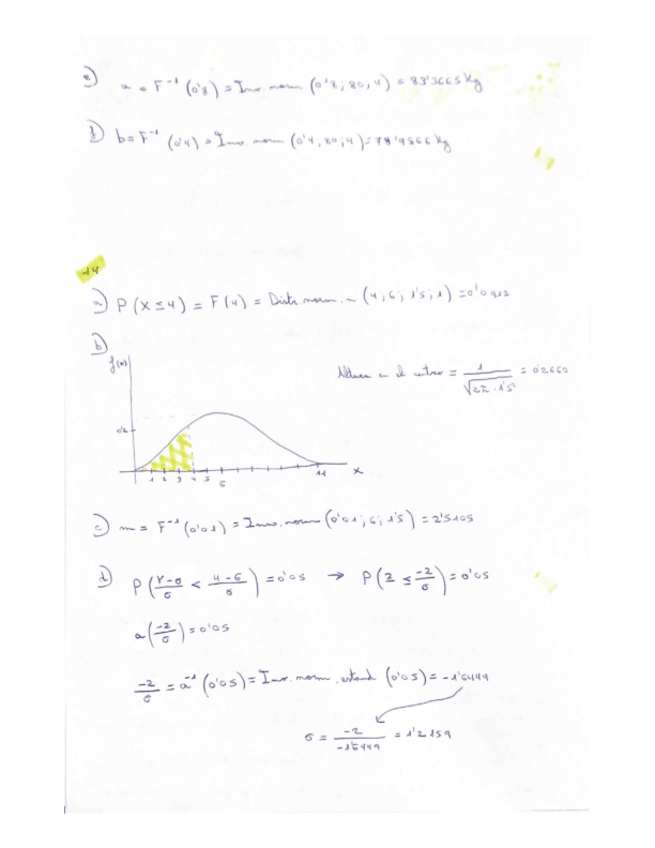 e) a = F⁻¹ (0'8) = Inv. norm (0'8; 80; 4) = 83'3665 kg
f) b = F⁻¹ (0'4) = Inv. norm (0'4; 80; 4) = 78'9866 kg
14
a) P (X ≤ 4) = F(4) = Distr. norm. n (4; 6; 1'5; 1) = 0'0912
b)
f(x)
Altura en el centro = 1 / √2π · 1'5² = 0'2660
0'2
1 2 3 4 5 6 11 x
c) m = F⁻¹ (0'01) = Inv. norm (0'01; 6; 1'5) = 2'5105
d) P( Y-6/σ < 4-6/σ ) = 0'05 → P( Z ≤ -2/σ ) = 0'05
a( -2/σ ) = 0'05
-2/σ = a⁻¹ (0'05) = Inv. norm. estand (0'05) = -1'6449
σ = -2 / -1'6449 = 1'2159